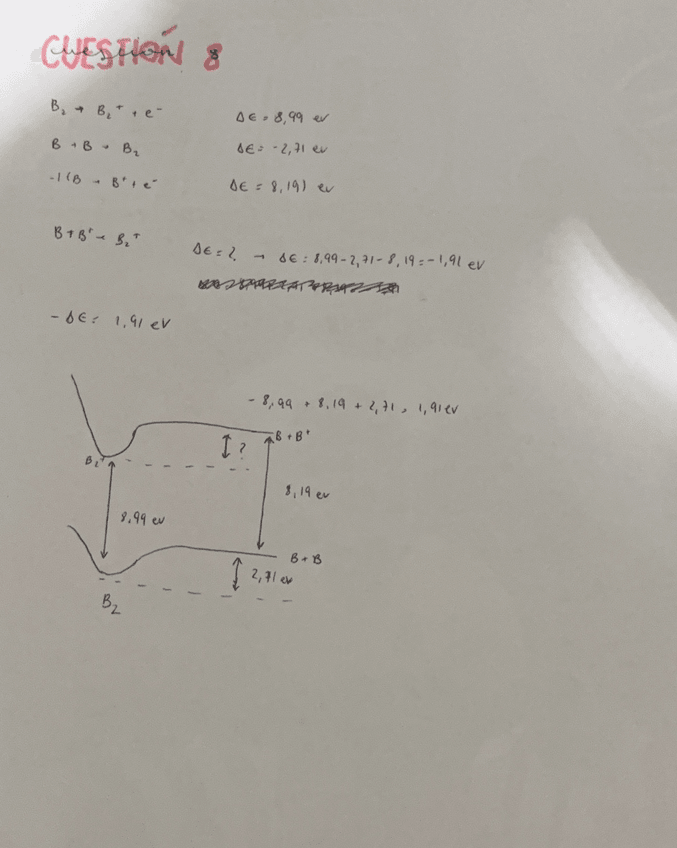 CUESTIÓN 8
B₂ → B₂⁺ + e⁻ Δε = 8,99 ev
B + B → B₂ Δε = -2,71 ev
-1(B → B⁺ + e⁻ Δε = 8,19) ev
B + B⁺ → B₂⁺ Δε = ? → Δε = 8,99 - 2,71 - 8,19 = -1,91 eV
- Δε = 1,91 eV
- 8,99 + 8,19 + 2,71 = 1,91 ev
B + B⁺
?
B₂⁺
8,19 ev
8,99 ev
B + B
2,71 ev
B₂